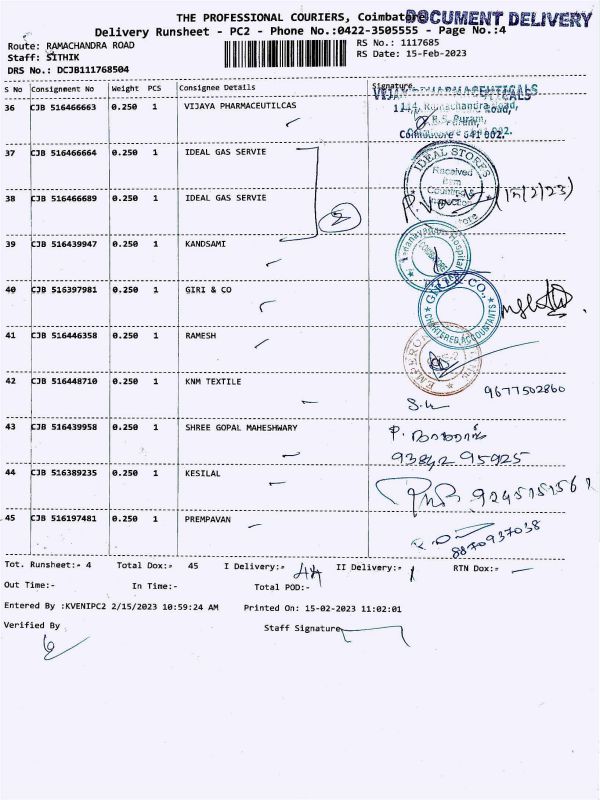 THE PROFESSIONAL COURIERS, Coimbatore
DOCUMENT DELIVERY
Delivery Runsheet - PC2 - Phone No.:0422-3505555 - Page No.:4
Route: RAMACHANDRA ROAD
RS No.: 1117685
Staff: SITHIK
RS Date: 15-Feb-2023
DRS No.: DCJB111768504
S No Consignment No Weight PCS Consignee Details Signature
VIJAYA PHARMACEUTICALS
36 CJB 516466663 0.250 1 VIJAYA PHARMACEUTILCAS
1114, Ramachandra Road,
R.S. Puram,
Coimbatore - 641 002.
37 CJB 516466664 0.250 1 IDEAL GAS SERVIE
IDEAL STORES
Received
38 CJB 516466689 0.250 1 IDEAL GAS SERVIE
(15/2/23)
39 CJB 516439947 0.250 1 KANDSAMI
Hospital
40 CJB 516397981 0.250 1 GIRI & CO
GIRI & CO.,
CHARTERED ACCOUNTANTS
41 CJB 516446358 0.250 1 RAMESH
42 CJB 516448710 0.250 1 KNM TEXTILE
9677502860
43 CJB 516439958 0.250 1 SHREE GOPAL MAHESHWARY
93842 95925
44 CJB 516389235 0.250 1 KESILAL
45 CJB 516197481 0.250 1 PREMPAVAN
8870937038
Tot. Runsheet:- 4 Total Dox:- 45 I Delivery:- 44 II Delivery:- 1 RTN Dox:- -
Out Time:- In Time:- Total POD:-
Entered By :KVENIPC2 2/15/2023 10:59:24 AM Printed On: 15-02-2023 11:02:01
Verified By Staff Signature